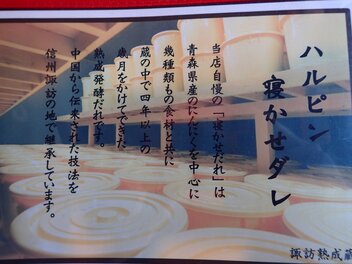 ハルピン
寝かせダレ
当店自慢の「寝かせだれ」は
青森県産のにんにくを中心に
幾種類もの食材と共に
蔵の中で四年以上の
歳月をかけてできた
熟成発酵だれです。
中国から伝来された技法を
信州諏訪の地で継承しています。
諏訪熟成蔵